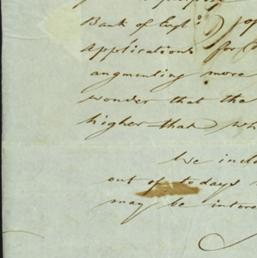 Bank of Engl^d. of
Applications for
augmenting more
wonder that the
higher than wh
We incl
out of todays
may be inter